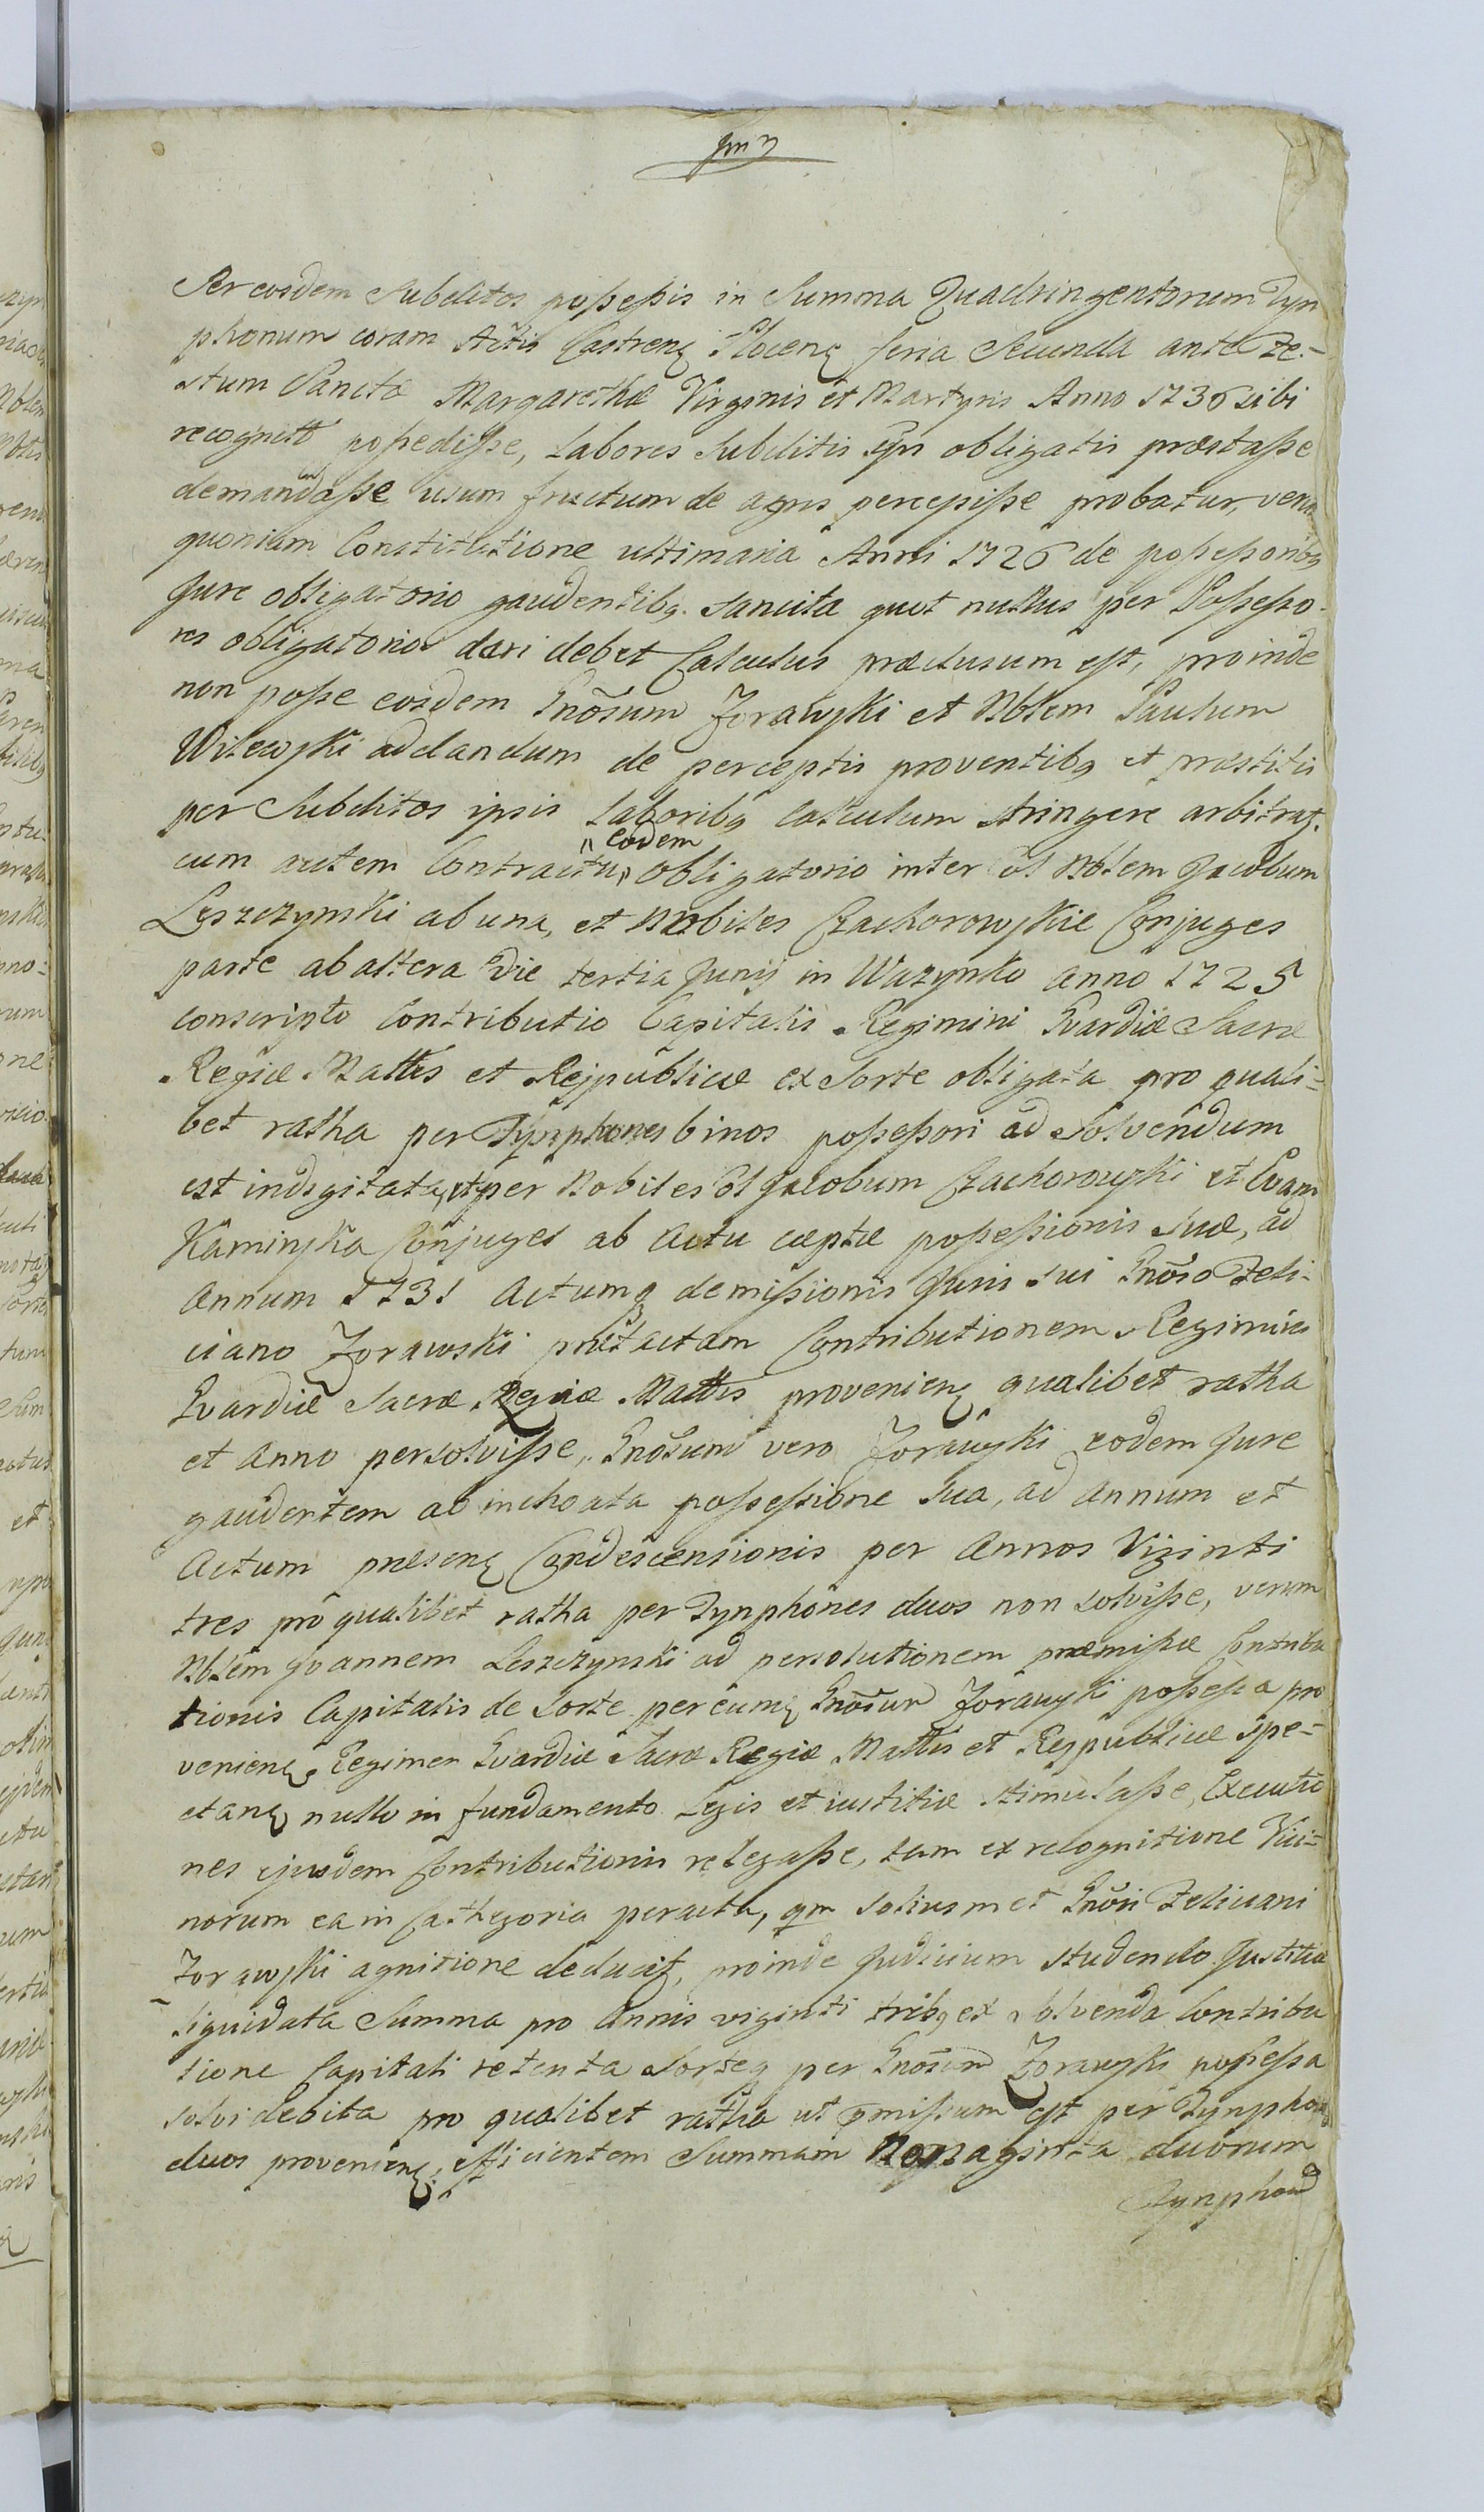 Per eosdem Subditos possessis in Summa Quadringentorum Tyn
phonum coram Actis Castren Plocen feria Secunda ante Fe-
stum Sanctæ Margarethæ Virginis et Martyris Anno 1736 sibi
recognito possedisse, Labores Subditis ipsis obligatis præstasse
demandasse usum fructum de agris percepisse probatur, verum
quoniam Constitutione ultimaria Anni 1726 de possessoribq
Jure obligatorio gaudentibq. sancita quot nullus per Possesso-
res obligatorios dari debet Calculus præclusum est, proinde
non posse eosdem Gnōsum Zorawski et Nblem Paulum
Wilewski ad dandum de perceptis proventibq et præstitis
per Subditos ipsis Laboribq calculum stringere arbitrat.
cum autem Contractu " eodem " obligatorio inter ol Nblem Jacobum
Leszczynski ab una, et Nobiles Czachorowskie Conjuges
parte ab altera die tertia Junij in Wazynko anno 1725
conscripto Contributio Capitalis Regimini Gvardiæ Sacræ
Regiæ Mattis et Rejpublicæ ex Sorte obligata pro quali-
bet ratha per Tynphones binos possessori ad solvendum
est indigitata, per Nobiles ol Jacobum Czachorowski et Evam
Kaminska Conjuges ab actu cæptæ possessionis suæ, ad
annum 1731 actumq demissionis Juris sui Gnōso Feli-
ciano Zorawski prætactam Contributionem Regiminis
Gvardiæ Sacræ Regiæ Mattis provenien qualibet ratha
et anno persolvisse, Gnōsum vero Zorawski eodem Jure
gaudentem ab inchoata possessione sua, ad annum et
actum præsen Condescensionis per annos Viginti
tres pro qualibet ratha per Tynphones duos non solvisse, verum
Nblem Joannem Leszczynski ad persolutionem præmissæ Contribu
tionis Capitalis de Sorte per eum Gnōsum Zorawski possessa pro
venien Regimen Gvardiæ Sacræ Regiæ Mattis et Rejpublicæ spe-
ctan nullo in fundamento Legis et iustitiæ stimulasse, Executio
nes ejusdem Contributionis relegasse, tam ex recognitione Vici-
norum ea in Cathegoria peracta, qm solius met Gnōsi Feliciani
Zorawski agnitione deducit, proinde Judicium studendo Justitiæ
liquidata Summa pro annis viginti tribq ex solvenda Contribu
tione Capitali retenta Sorteq per Gnōsum Zorawski possessa
solvi debita pro qualibet ratha ut pmissum est per Tynphones
duos provenien, efficientem Summam Nonaginta duorum
Tynphonū